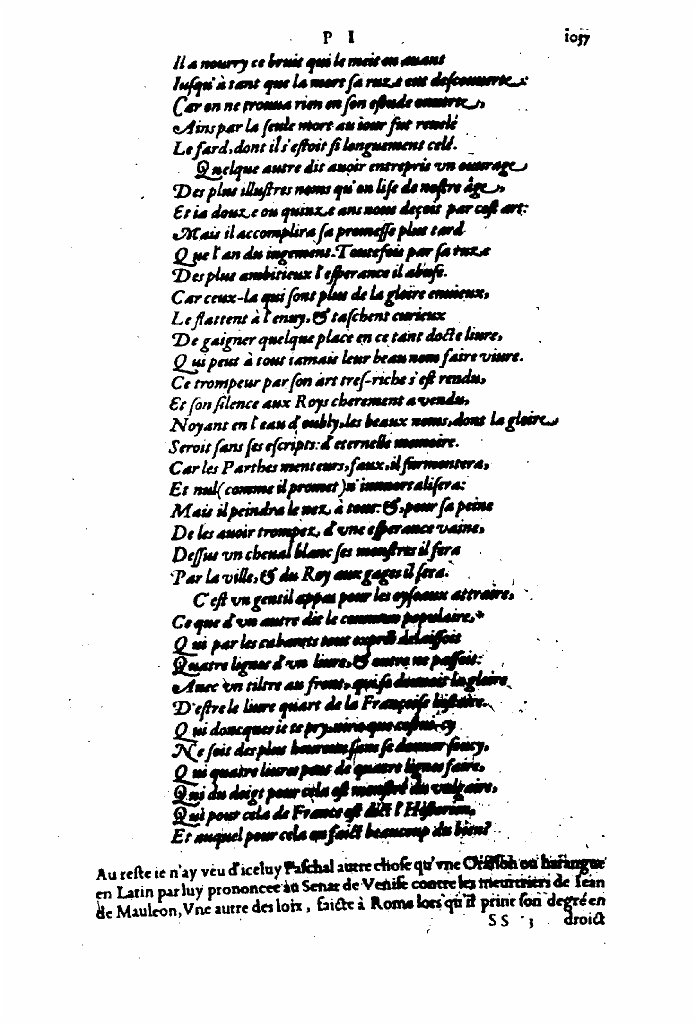 P I 1057
Il a nourry ce bruit qui le meit en auant
Iuſqu'à tant que la mort ſa ruze eut deſcouuerte:
Car on ne trouua rien en ſon eſtude ouuerte,
Ains par la ſeule mort au iour fut reuelé
Le fard, dont il s'eſtoit ſi longuement celé.
Quelque autre dit auoir entrepris vn ouurage
Des plus illuſtres noms qu'on liſe de noſtre âge,
Et ia douze ou quinze ans nous deçoit par ceſt art:
Mais il accomplira ſa promeſſe plus tard
Que l'an du iugement. Toutefois par ſa ruze
Des plus ambitieux l'eſperance il abuſe.
Car ceux-la qui ſont plus de la gloire enuieux,
Le flattent à l'enuy, & taſchent curieux
De gaigner quelque place en ce tant docte liure,
Qui peut à tout iamais leur beau nom faire viure.
Ce trompeur par ſon art tres-riche s'eſt rendu,
Et ſon ſilence aux Roys cherement a vendu,
Noyant en l'eau d'oubly, les beaux noms, dont la gloire
Seroit ſans ſes eſcripts: d'eternelle memoire.
Car les Parthes menteurs, faux, il ſurmontera,
Et nul (comme il promet) n'immortaliſera:
Mais il peindra le nez à tous: &, pour ſa peine
De les auoir trompez, d'vne eſperance vaine,
Deſſus vn cheual blanc ſes monſtres il fera
Par la ville, & du Roy aux gages il ſera.
C'eſt vn gentil appas pour les oyſeaux attraire,
Ce que d'vn autre dit le commun populaire,
Qui par les cabarets tout exprés delaiſſoit
Quatre lignes d'vn liure, & outre ne paſſoit:
Auec vn tiltre au front, qui ſe donnoit la gloire
D'eſtre le liure quart de la Françoiſe hiſtoire.
Qui doncques ie te pry, nira que ceſtui-cy
Ne ſoit des plus heureux ſans ſe donner ſoucy,
Qui quatre liures peut de quatre lignes faire,
Qui du doigt pour cela eſt monſtré du vulgaire,
Qui pour cela de France eſt dict l'Hiſtorien,
Et auquel pour cela on faict beaucoup du bien?
Au reſte ie n'ay veu d'iceluy Paſchal autre choſe qu'vne Oraiſon ou harangue
en Latin par luy prononcee au Senat de Veniſe contre les meurtriers de Iean
de Mauleon, Vne autre des loix, faicte à Rome lors qu'il print ſon degré en
SS 3 droict